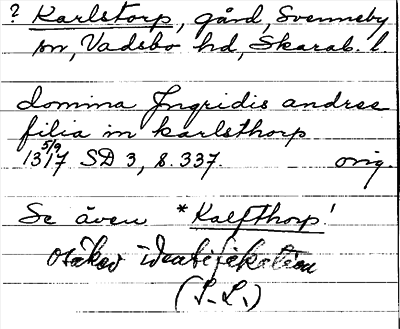 ? Karlstorp, gård, Svenneby
sn, Vadsbo hd, Skarab. l.
domina Jngridis andree
filia in karlsthorp
5/9
1317 SD 3, s. 337. orig.
Se även *Kalfthorp!
osäker identifikation
(S.L.)